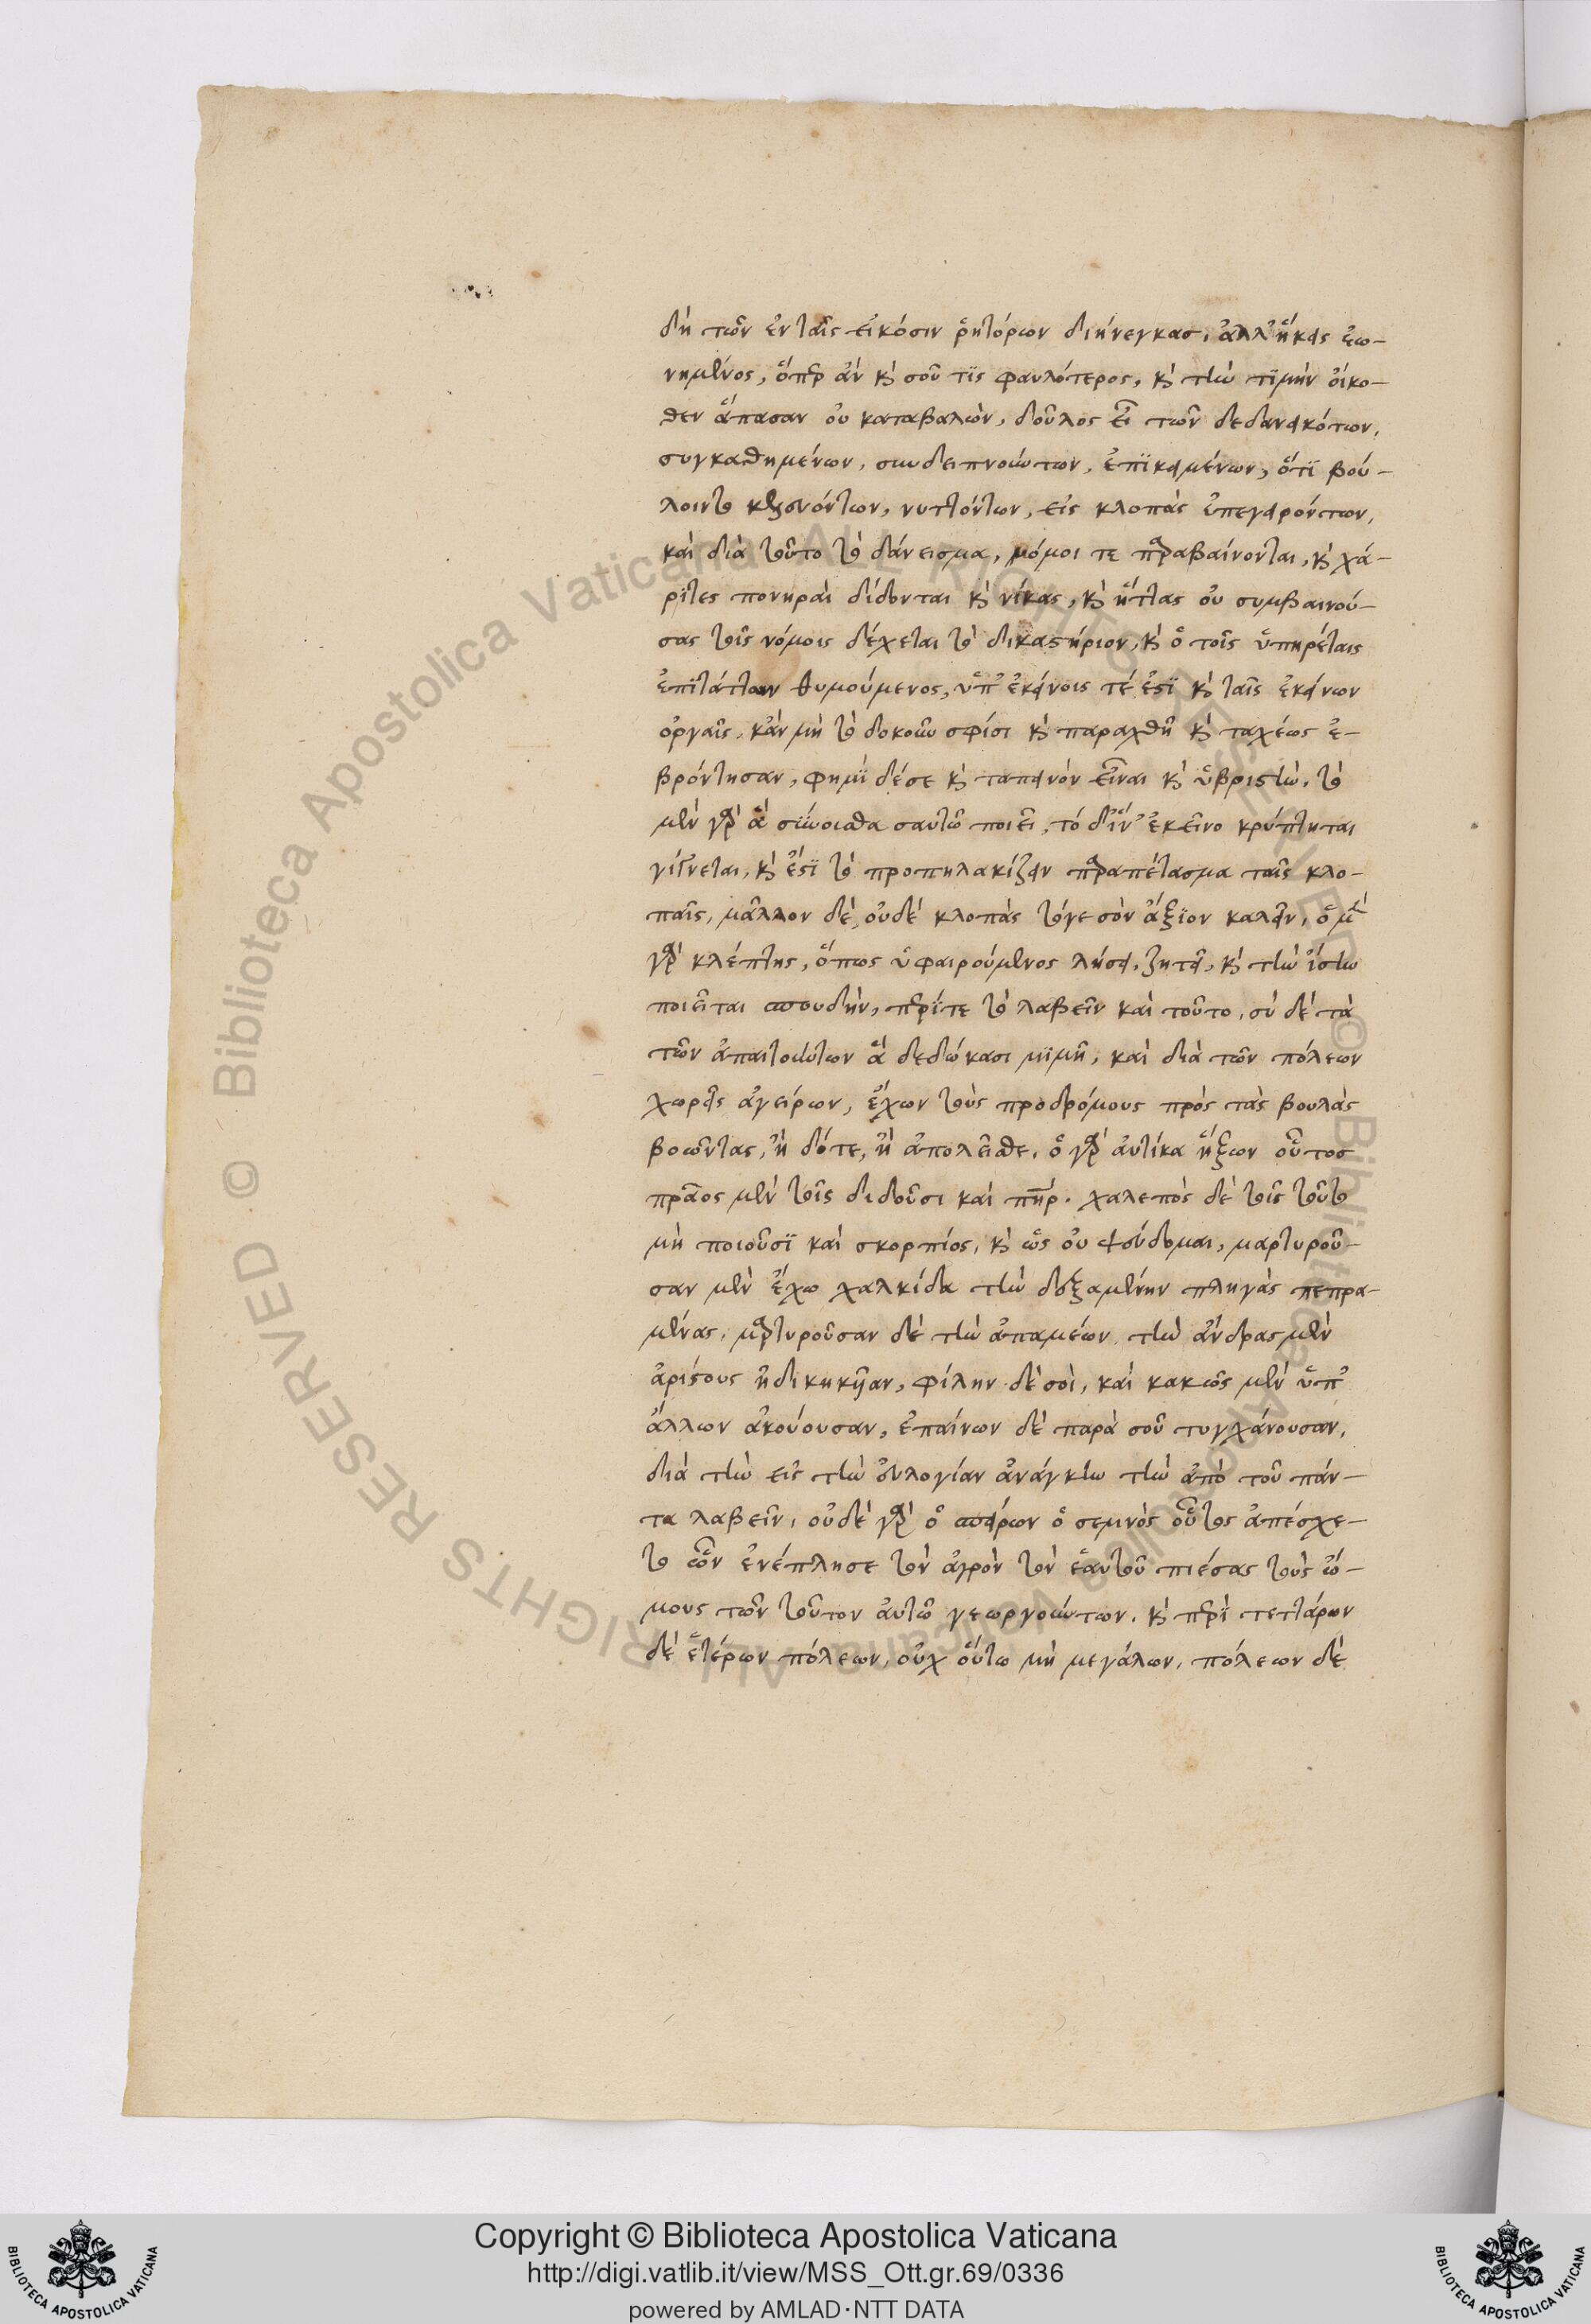 δὴ τῶν ἐν ταῖς εἰκόσιν ῥητόρων διήνεγκας, ἀλλ' ἥκεις ἐω-
νημένος, ὅπερ ἂν κὶ σοῦ τὶς φαυλότερος, κὶ τὴν τϊμὴν οἴκο-
θεν ἅπασαν οὐ καταβαλὼν, δοῦλος εἶ τῶν δεδανεικότων,
συγκαθημένων, συνδειπνούντων, ἐπϊκειμένων, ὅτϊ βού-
λοιντο κελευόντων, νυττόντων, εἰς κλοπὰς ἐπεγειρόντων,
καὶ διὰ τοῦτο τὸ δάνεισμα, νόμοι τε παραβαίνονται, κὶ χά-
ρϊτες πονηραὶ δίδονται κὶ νίκας, κὶ ἥττας οὐ συμβαινού-
σας τοῖς νόμοις δέχεται τὸ δικαστήριον, κὶ ὁ τοῖς ὑπηρέταις
ἐπϊτάττων θυμούμενος, ὑπ' ἐκείνοις τέ ἐστϊ κὶ ταῖς ἐκείνων
ὀργαῖς, κἂν μὴ τὸ δοκοῦν σφίσι κὶ παραχθῆ κὶ ταχέως ἐ-
βρόντησαν, φημὶ δέ σε κὶ ταπεινὸν εἶναι κὶ ὑβριστὴν, τὸ
μὲν γὰρ ἃ σύνοισθα σαυτῶ ποιεῖ, τὸ δ' ἵν' ἐκεῖνο κρύπτηται
γίγνεται, κὶ ἔστϊ τὸ προπηλακίζειν παραπέτασμα ταῖς κλο-
παῖς, μᾶλλον δὲ, οὐδὲ κλοπὰς τόγε σὸν ἄξϊον καλεῖν, ὁ μὲν
γὰρ κλέπτης, ὅπως ὑφαιρούμενος λήσει, ζητεῖ, κὶ τὴν ἴστω
ποιεῖται σπουδὴν, περίτε τὸ λαβεῖν καὶ τοῦτο, σὺ δὲ τὰ
τῶν ἀπαιτούντων ἃ δεδώκασι μϊμῆ, καὶ διὰ τῶν πόλεων
χωρεῖς ἀγείρων, ἔχων τοὺς προδρόμους πρὸς τὰς βουλὰς
βοῶντας, ἢ δότε, ἢ ἀπολεῖσθε, ὁ γὰρ αὐτίκα ἥξων οὗτος
πρᾶος μὲν τοῖς διδοῦσι καὶ πηρ. χαλεπὸς δὲ τοῖς τοῦτο
μὴ ποιοῦσϊ καὶ σκορπίος, κὶ ὡς οὐ ψεύδομαι, μαρτυροῦ-
σαν μὲν ἔχω χαλκίδα τὴν δεξαμένην πληγὰς πεπρα-
μένας, μαρτυροῦσαν δὲ τὴν ἀπαμέων, τὴν ἄνδρας μὲν
ἀρίστους ἠδικηκῆαν, φίλην δὲ σοὶ, καὶ κακῶς μὲν ὑπ'
ἄλλων ἀκούουσαν, ἐπαίνων δὲ παρὰ σοῦ τυγχάνουσαν,
διὰ τὴν εἰς τὴν εὐλογίαν ἀνάγκην τὴν ἀπὸ τοῦ πάν-
τα λαβεῖν, οὐδὲ γὰρ ὁ σπείρων ὁ σεμνὸς οὗτος ἀπέσχε-
το ὧν ἐνέπλησε τὸν ἀγρὸν τὸν ἑαυτοῦ πιέσας τοὺς ὤ-
μους τῶν τοῦτον αὐτῶ γεωργούντων, κὶ περὶ τεττάρων
δὲ ἑτέρων πόλεων, οὐχ οὕτω μὴ μεγάλων, πόλεων δὲ
Copyright © Biblioteca Apostolica Vaticana
http://digi.vatlib.it/view/MSS_Ott.gr.69/0336
powered by AMLAD·NTT DATA